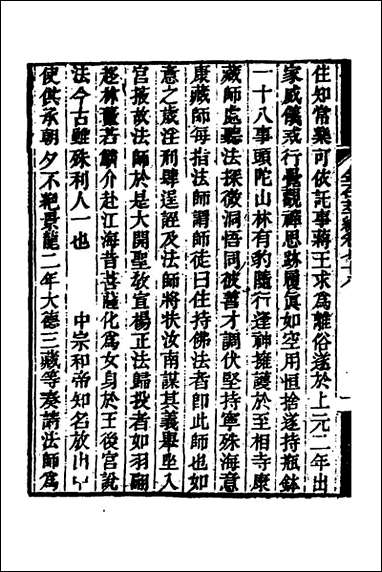 住知常樂可依託事蔣王求爲離俗遂於上元二年出
家威儀戒行覺觀禪思跡履眞如空用恒捨遂持瓶鉢
一十八事頭陀山林有豹隨行逢神擁護於至相寺康
藏師處聽法探微洞悟同彼善才調伏堅持寧殊海意
康藏師每指法師謂師徒曰住持佛法者卽此師也如
意之歲淫刑肆逞誣及法師將扶汝南謀其義舉坐入
宮掖故法師於是大開聖敎宣楊正法歸投者如羽翮
趍林薮若鱗介赴江海昔菩薩化爲女身於王後宮說
法今古雖殊利人一也　中宗和帝知名放出中
使供承朝夕不絕景龍二年大德三藏等奏請法師爲
金石萃編卷七十八